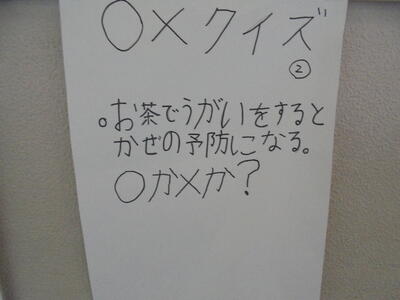 ○×クイズ
②
。お茶でうがいをすると
かぜの予防になる。
○か×か？